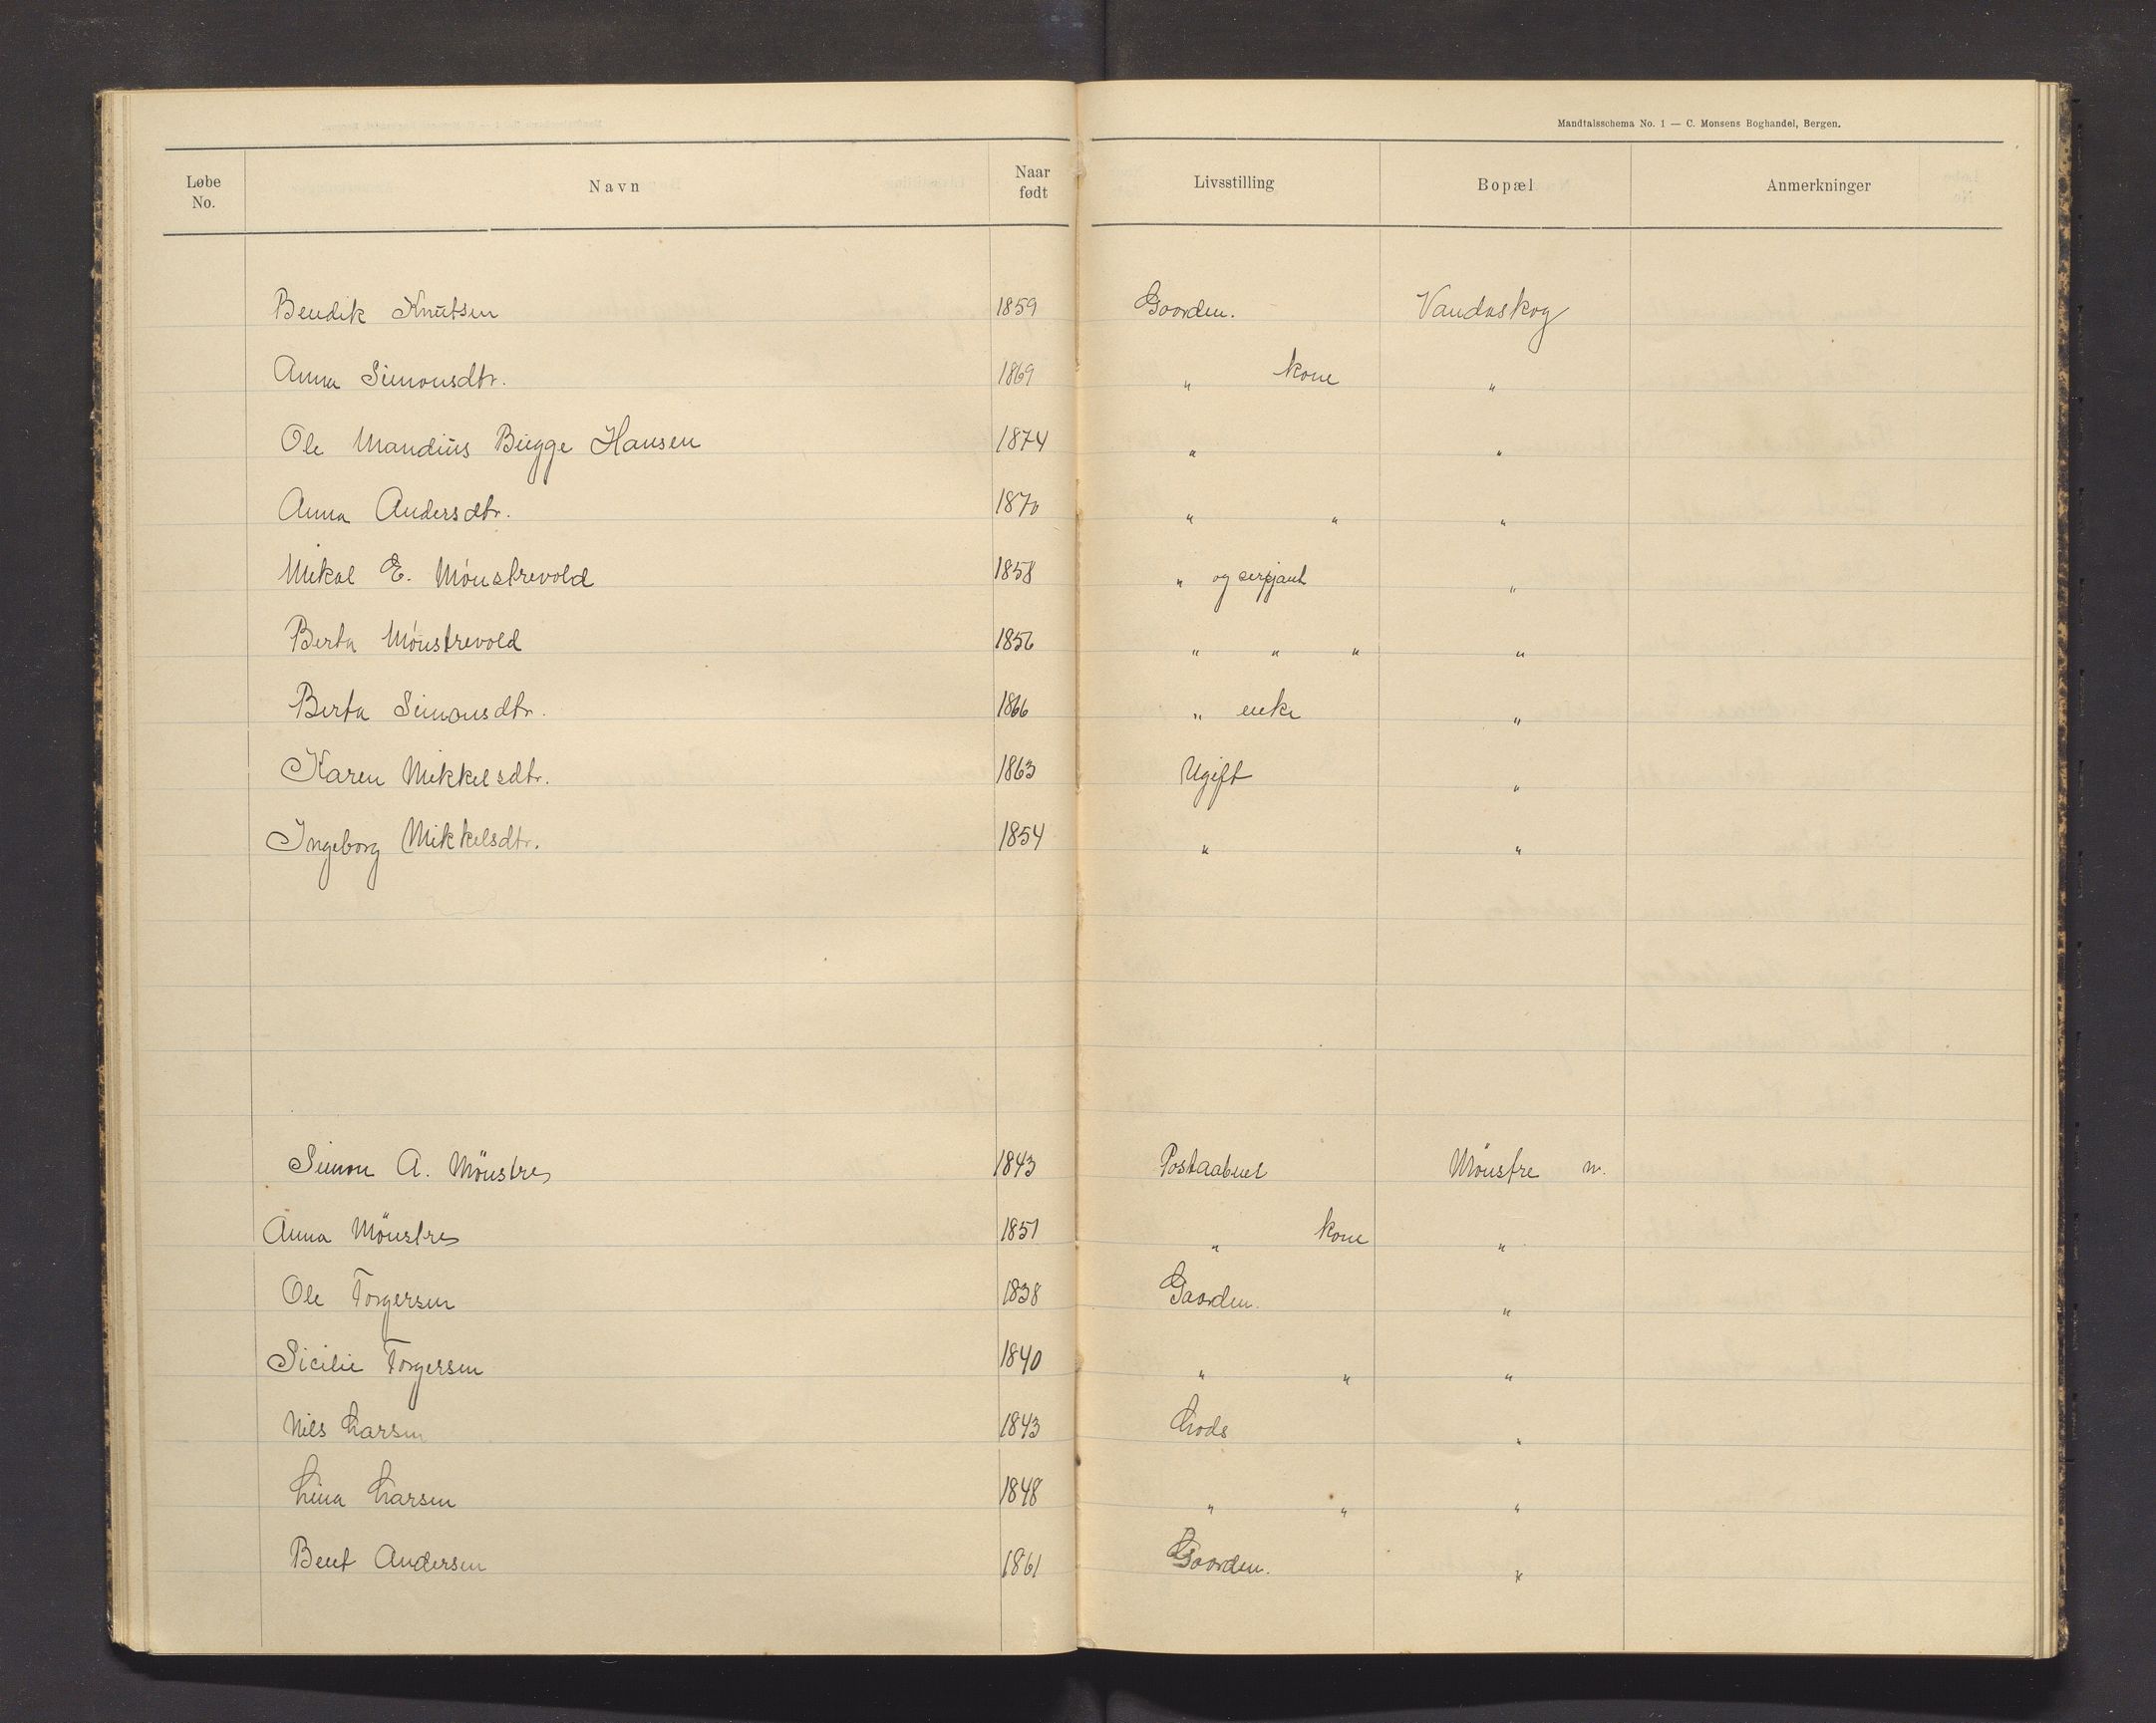 Mandtalsschema No. 1 — C. Monsens Boghandel, Bergen.
Løbe No. Navn Naar født Livsstilling Bopæl Anmerkninger
Bendik Knutsen 1859 Gaarden. Vandaskog
Anna Simonsdtr. 1869 " kone "
Ole Mandius Bugge Hansen 1874 " "
Anna Andersdtr. 1870 " " "
Mikal E. Mönstrevold 1858 " og serjant "
Berta Mönstrevold 1856 " " " "
Berta Simonsdtr. 1866 " enke "
Karen Mikkelsdtr. 1863 Ugift "
Ingeborg Mikkelsdtr. 1854 " "
Simon A. Mönstre 1843 Postaabner Mönstre n.
Anna Mönstre 1851 " kone "
Ole Torgersen 1838 Gaarden. "
Sicilie Torgersen 1840 " " "
Nils Larsen 1843 Lods "
Lina Larsen 1848 " " "
Bent Andersen 1861 Gaarden. "